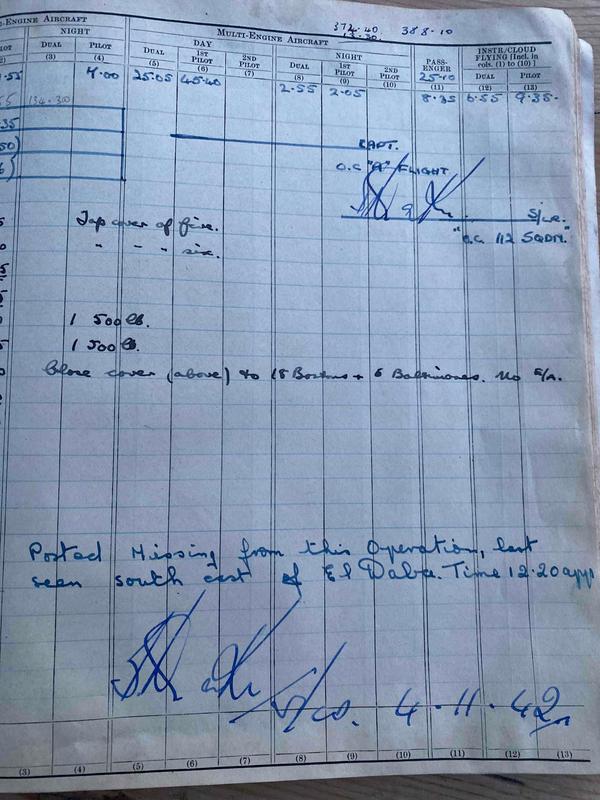 372.40 388.10
13.30
-ENGINE AIRCRAFT MULTI-ENGINE AIRCRAFT
NIGHT DAY NIGHT PASS-ENGER INSTR/CLOUD FLYING [Incl. in cols. (1) to (10)]
DUAL PILOT DUAL 1ST PILOT 2ND PILOT DUAL 1ST PILOT 2ND PILOT DUAL PILOT
(3) (4) (5) (6) (7) (8) (9) (10) (11) (12) (13)
.55 7.00 25.05 45.40 2.55 2.05 25.10 8.35 6.55 9.35
134.30
35
50)
CAPT.
O.C "A" FLIGHT
S/LR.
"O.C. 112 SQDN."
Top cover of five.
" - - " six.
1 500 lb.
1 500 lb.
Close cover (above) to 18 Bostons + 6 Baltimores. No E/A.
Posted Missing from this Operation, last
seen south east of El Daba. Time 12.20 appx
4.11.42
(3) (4) (5) (6) (7) (8) (9) (10) (11) (12) (13)